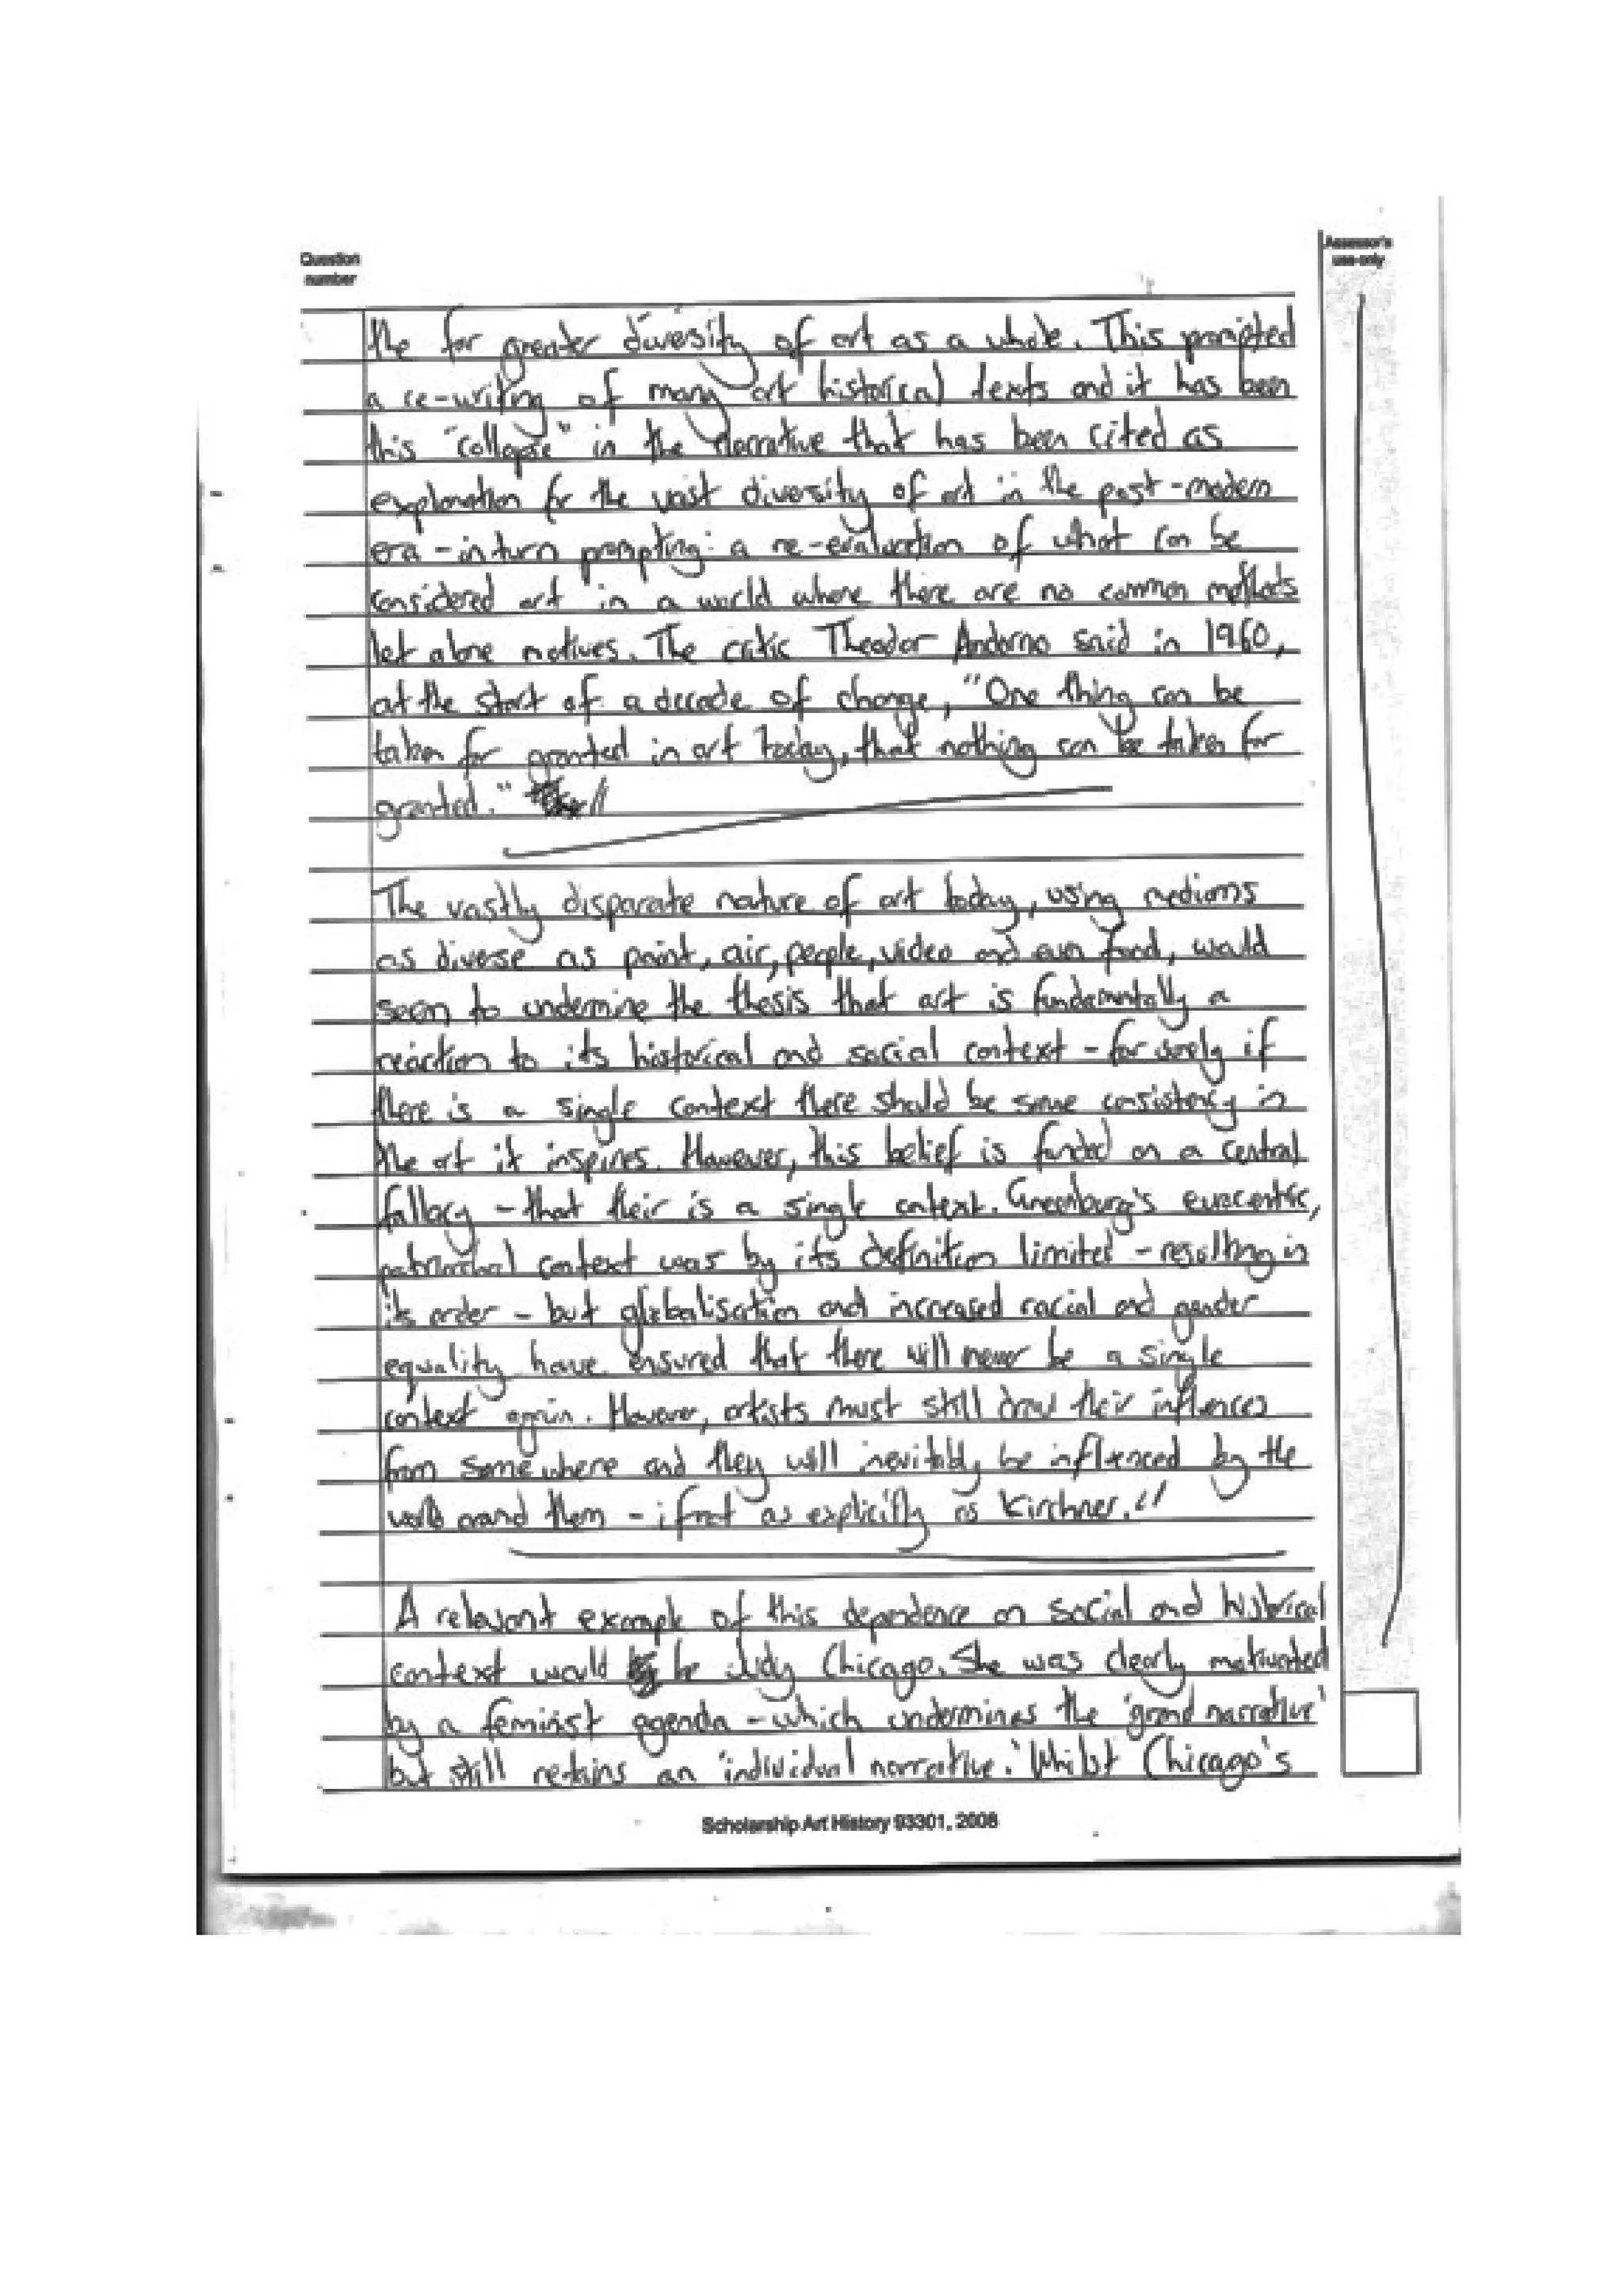 Question
number
Assessor's
use only
the far greater diversity of art as a whole. This prompted
a re-writing of many art historical texts and it has been
this "collapse" in the narrative that has been cited as
explanation for the vast diversity of art in the post-modern
era - in turn prompting a re-evaluation of what can be
considered art in a world where there are no common methods
let alone motives. The critic Theodor Andorno said in 1960,
at the start of a decade of change, "One thing can be
taken for granted in art today, that nothing can be taken for
granted."
The vastly disparate nature of art today, using mediums
as diverse as paint, air, people, video and even food, would
seem to undermine the thesis that art is fundamentally a
reaction to its historical and social context - for surely if
there is a single context there should be some consistency in
the art it inspires. However, this belief is founded on a central
fallacy - that their is a single context. Greenburg's eurocentric,
patriarchal context was by its definition limited - resulting in
its order - but globalisation and increased racial and gender
equality have ensured that there will never be a single
context again. However, artists must still draw their influences
from somewhere and they will inevitably be influenced by the
world around them - if not as explicitly as Kirchner.
A relevant example of this dependence on social and historical
context would be Judy Chicago. She was clearly motivated
by a feminist agenda - which undermines the 'grand narrative'
but still retains an 'individual narrative.' Whilst Chicago's
Scholarship Art History 93301, 2008